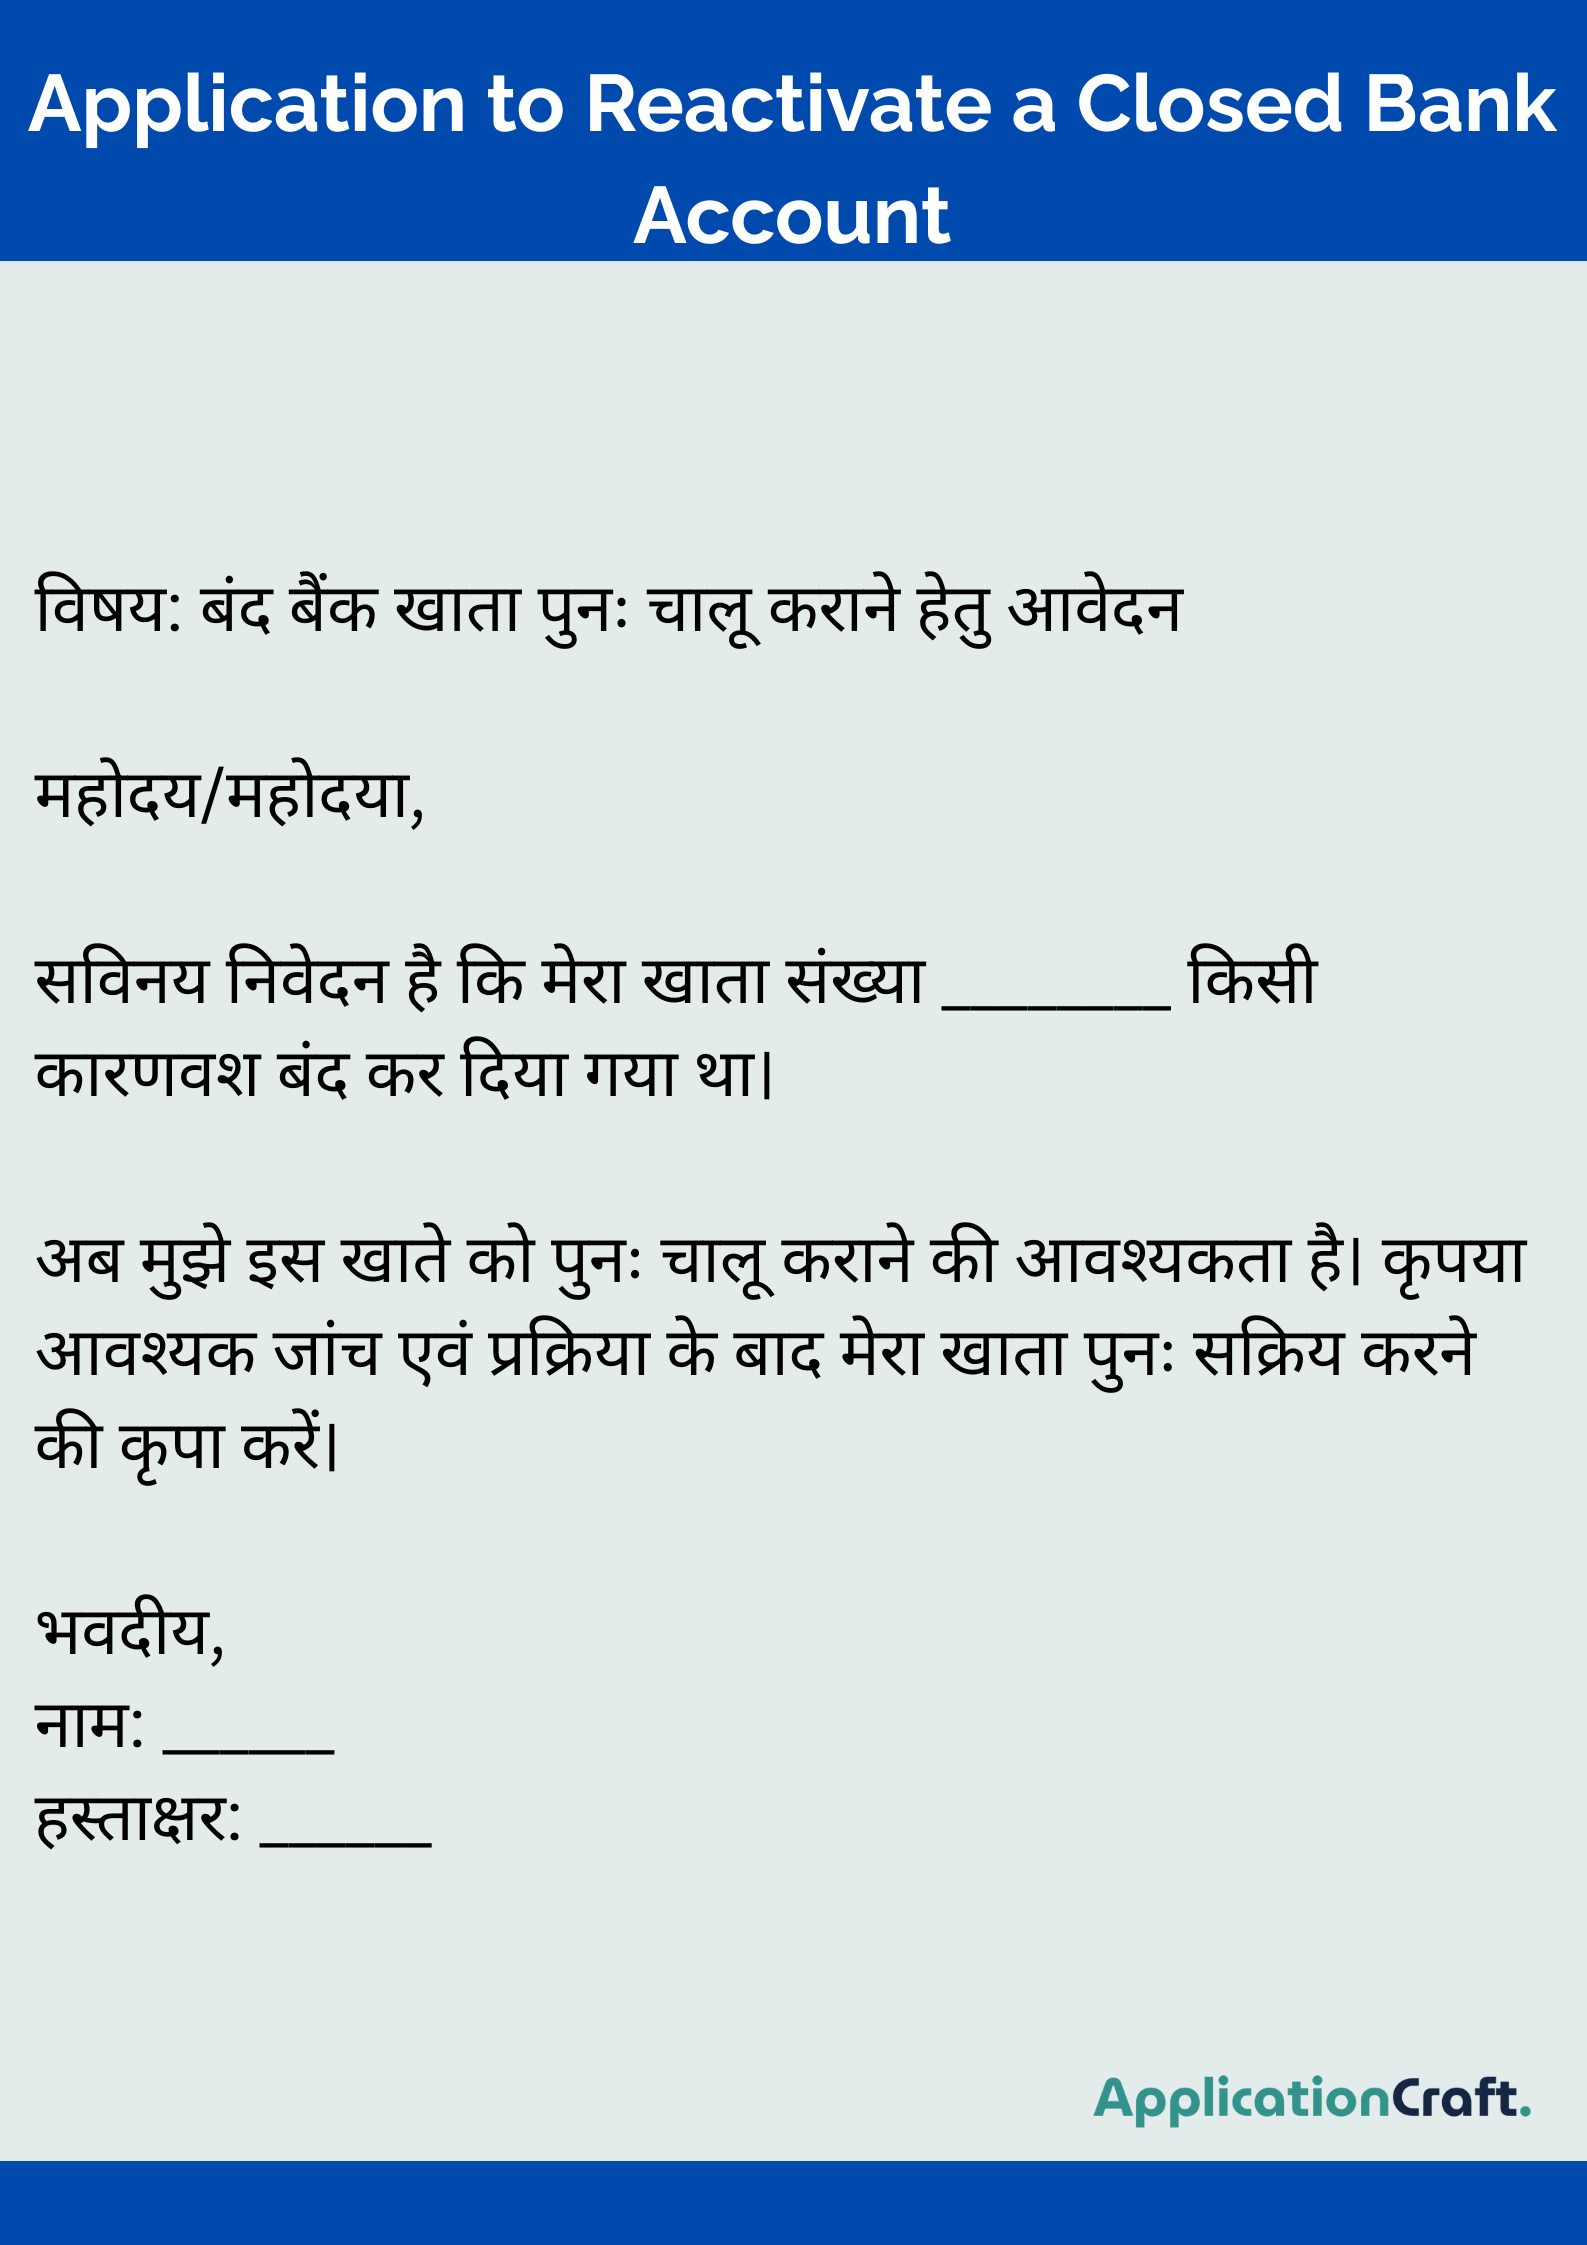 Application to Reactivate a Closed Bank
Account
विषय: बंद बैंक खाता पुनः चालू कराने हेतु आवेदन
महोदय/महोदया,
सविनय निवेदन है कि मेरा खाता संख्या ________ किसी
कारणवश बंद कर दिया गया था।
अब मुझे इस खाते को पुनः चालू कराने की आवश्यकता है। कृपया
आवश्यक जांच एवं प्रक्रिया के बाद मेरा खाता पुनः सक्रिय करने
की कृपा करें।
भवदीय,
नाम: ______
हस्ताक्षर: ______
ApplicationCraft.